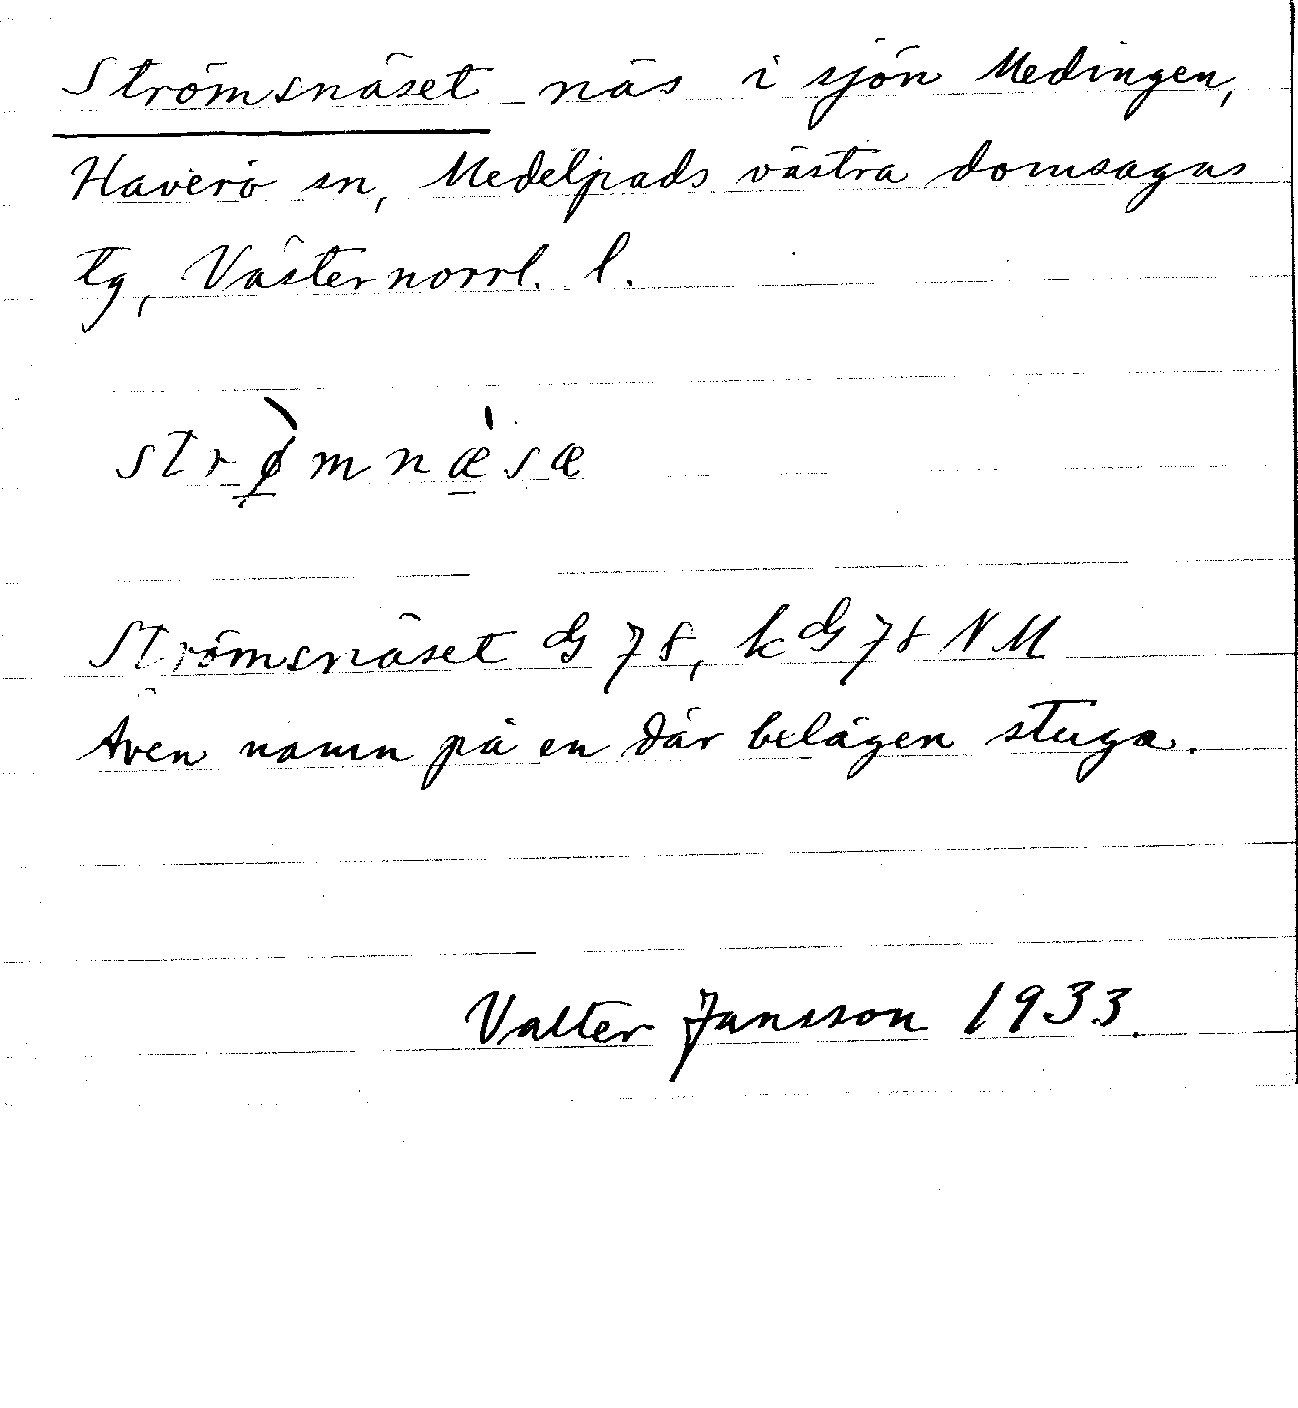 Strömsnäset näs i sjön Medingen,
Haverö sn, Medelpads västra domsagas
tg, Västernorrl. l.
strø̀mnæ̀sæ
Strömsnäset G 78, k G 78 NM
Även namn på en där belägen stuga.
Valter Jansson 1933.